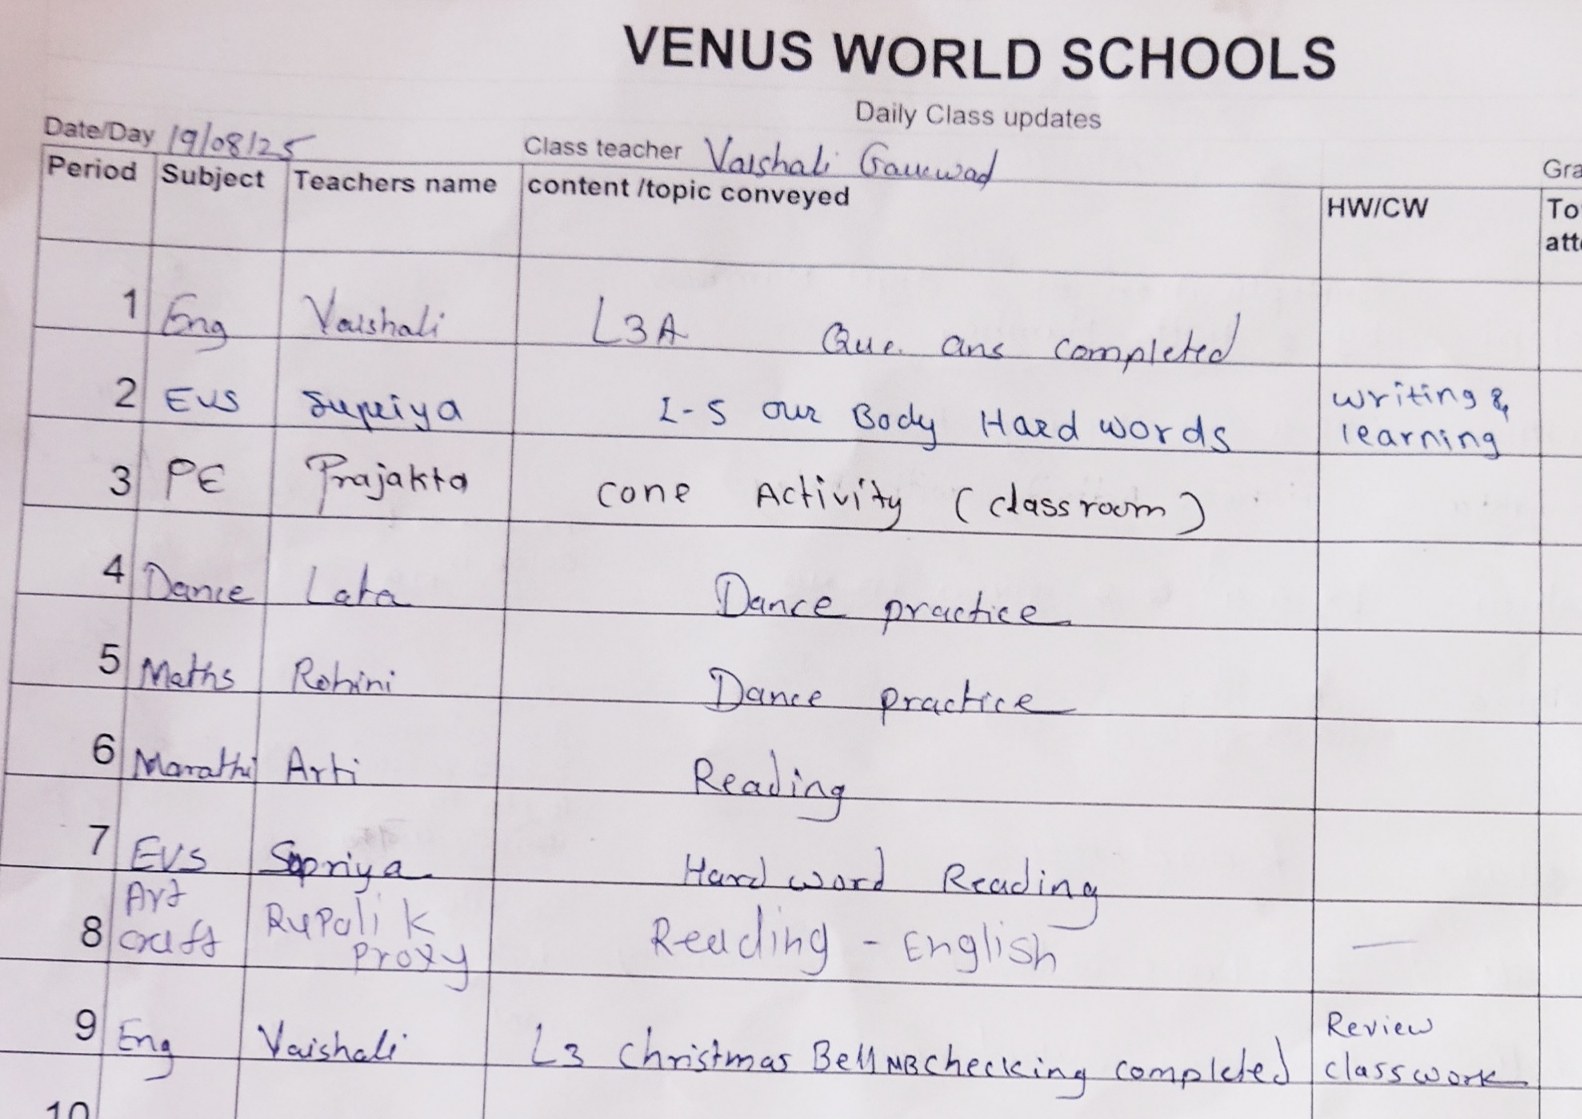 VENUS WORLD SCHOOLS
Daily Class updates
Date/Day 19/08/25 Class teacher Vaishali Gaikwad Gra
Period Subject Teachers name content /topic conveyed HW/CW To
att
1 Eng Vaishali L3A Que. ans completed
2 EVS Supriya L-5 our Body Hard words writing &
learning
3 PE Prajakta cone Activity (classroom)
4 Dance Lata Dance practice
5 Maths Rohini Dance practice
6 Marathi Arti Reading
7 EVS Supriya Hard word Reading
Art
8 craft Rupali K Reading - English —
Proxy
9 Eng Vaishali L3 Christmas Bell NB checking completed Review
classwork
10